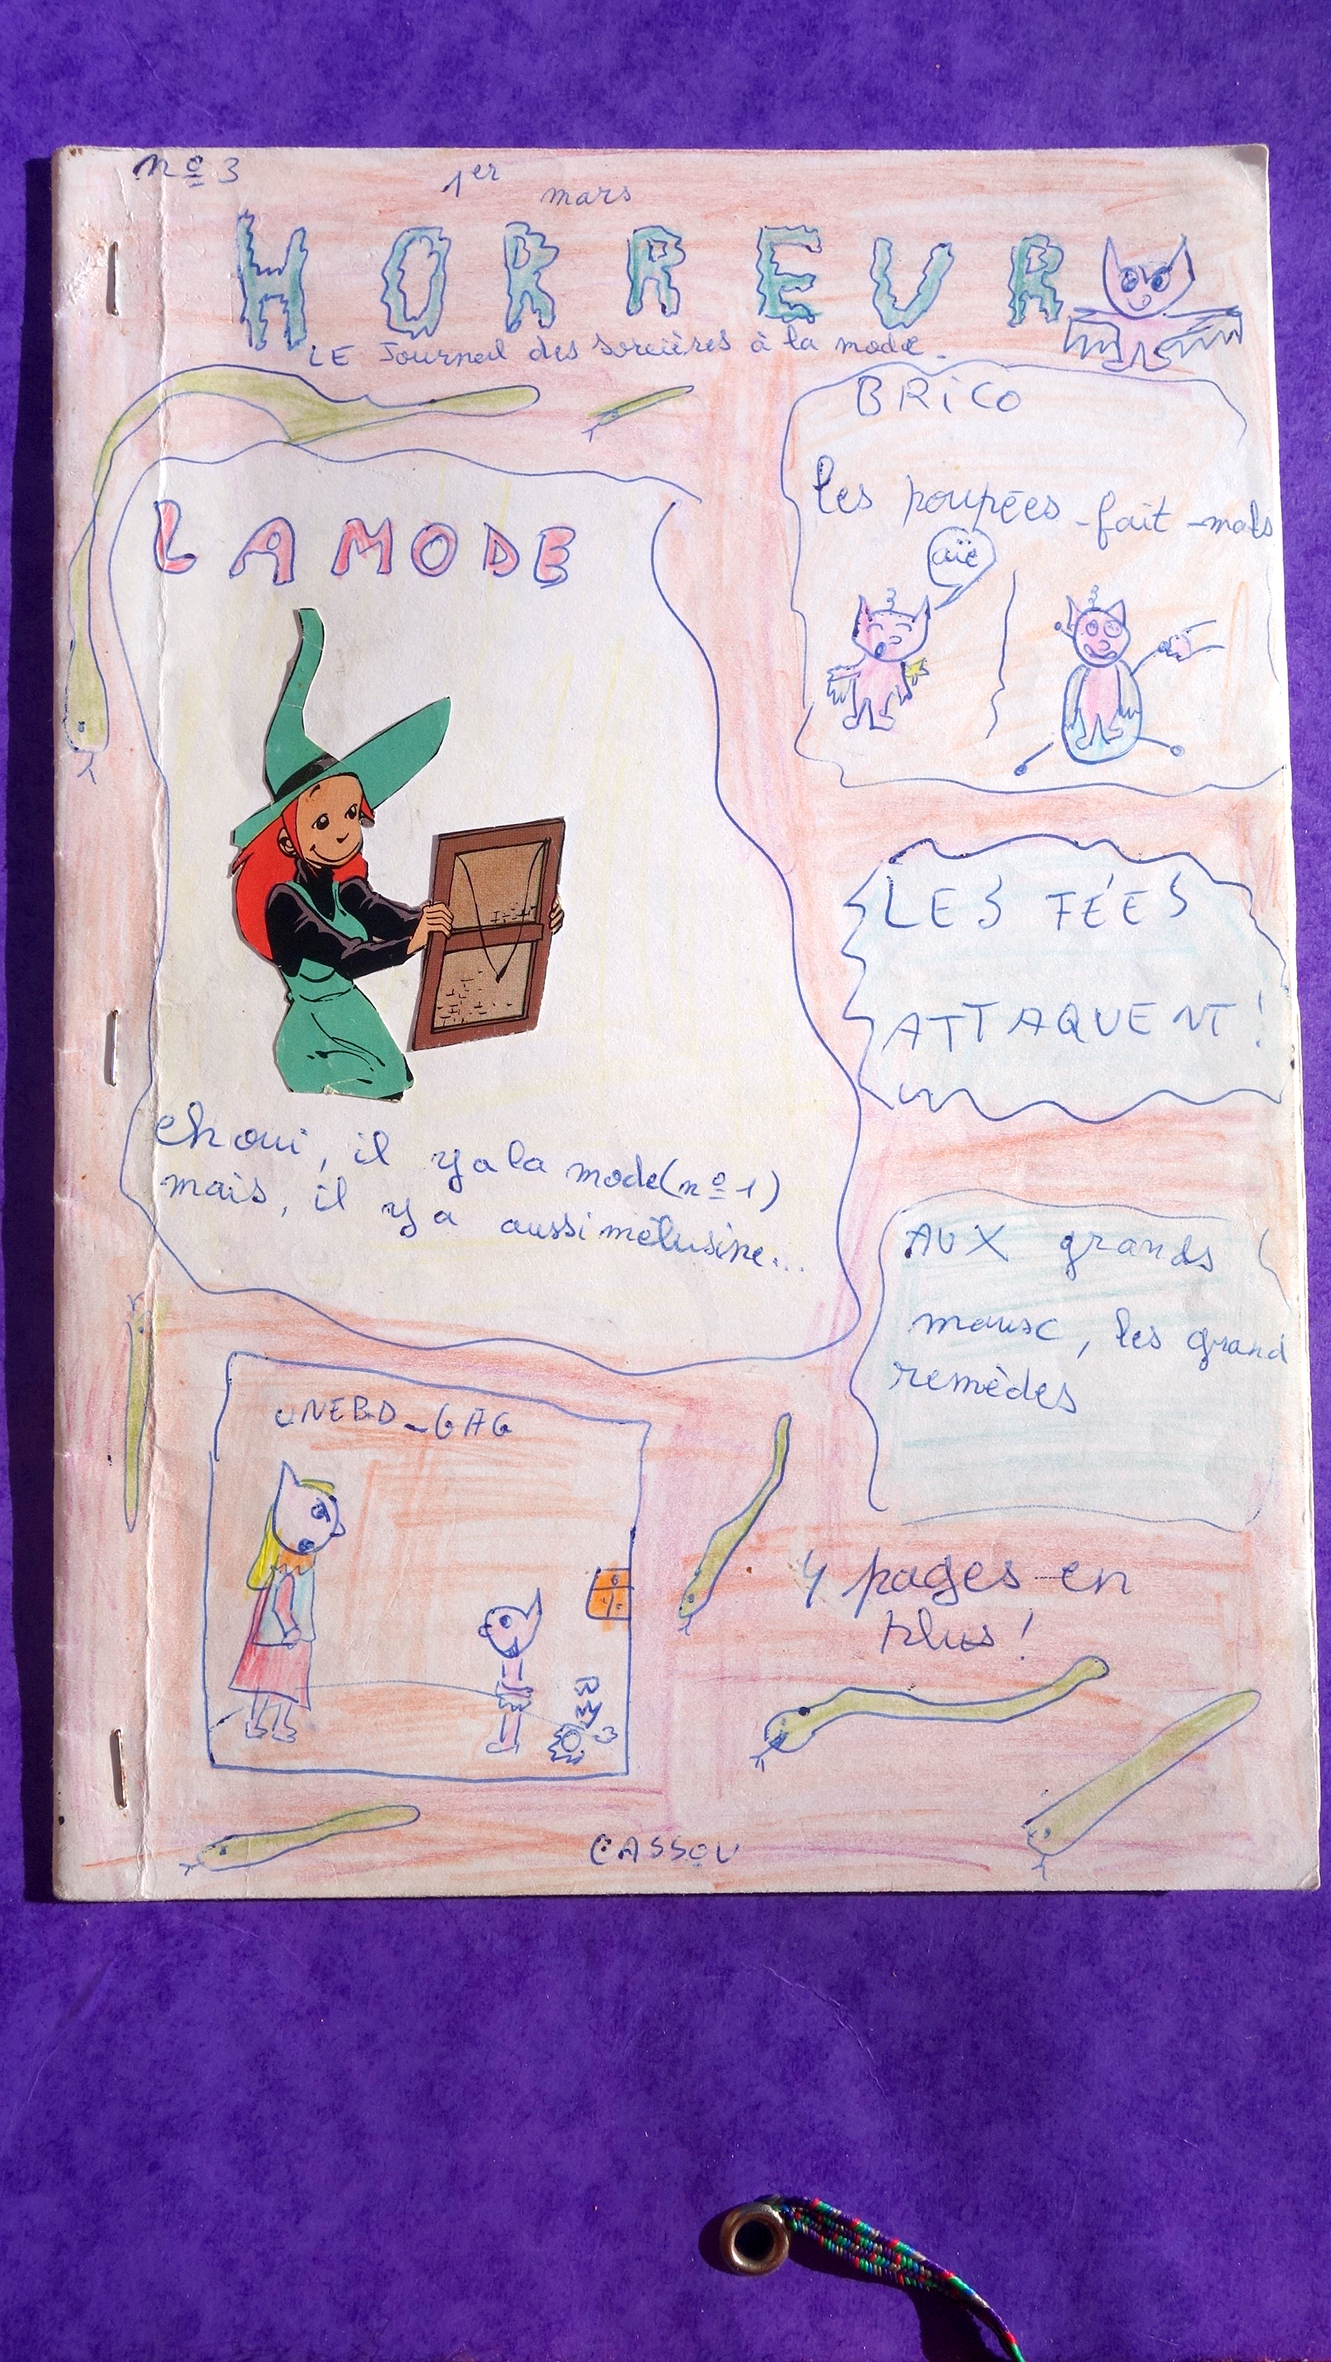 n° 3
1er mars
HORREUR
LE Journal des sorcières à la mode.
LA MODE
eh oui, il y a la mode (n° 1)
mais, il y a aussi mélusine...
BRiCO
les poupées fait mals
aïe
LES FÉES
ATTAQUENT !
AUX grands
maux, les grand
remèdes
UNE BD_GAG
4 pages en
plus !
CASSOU